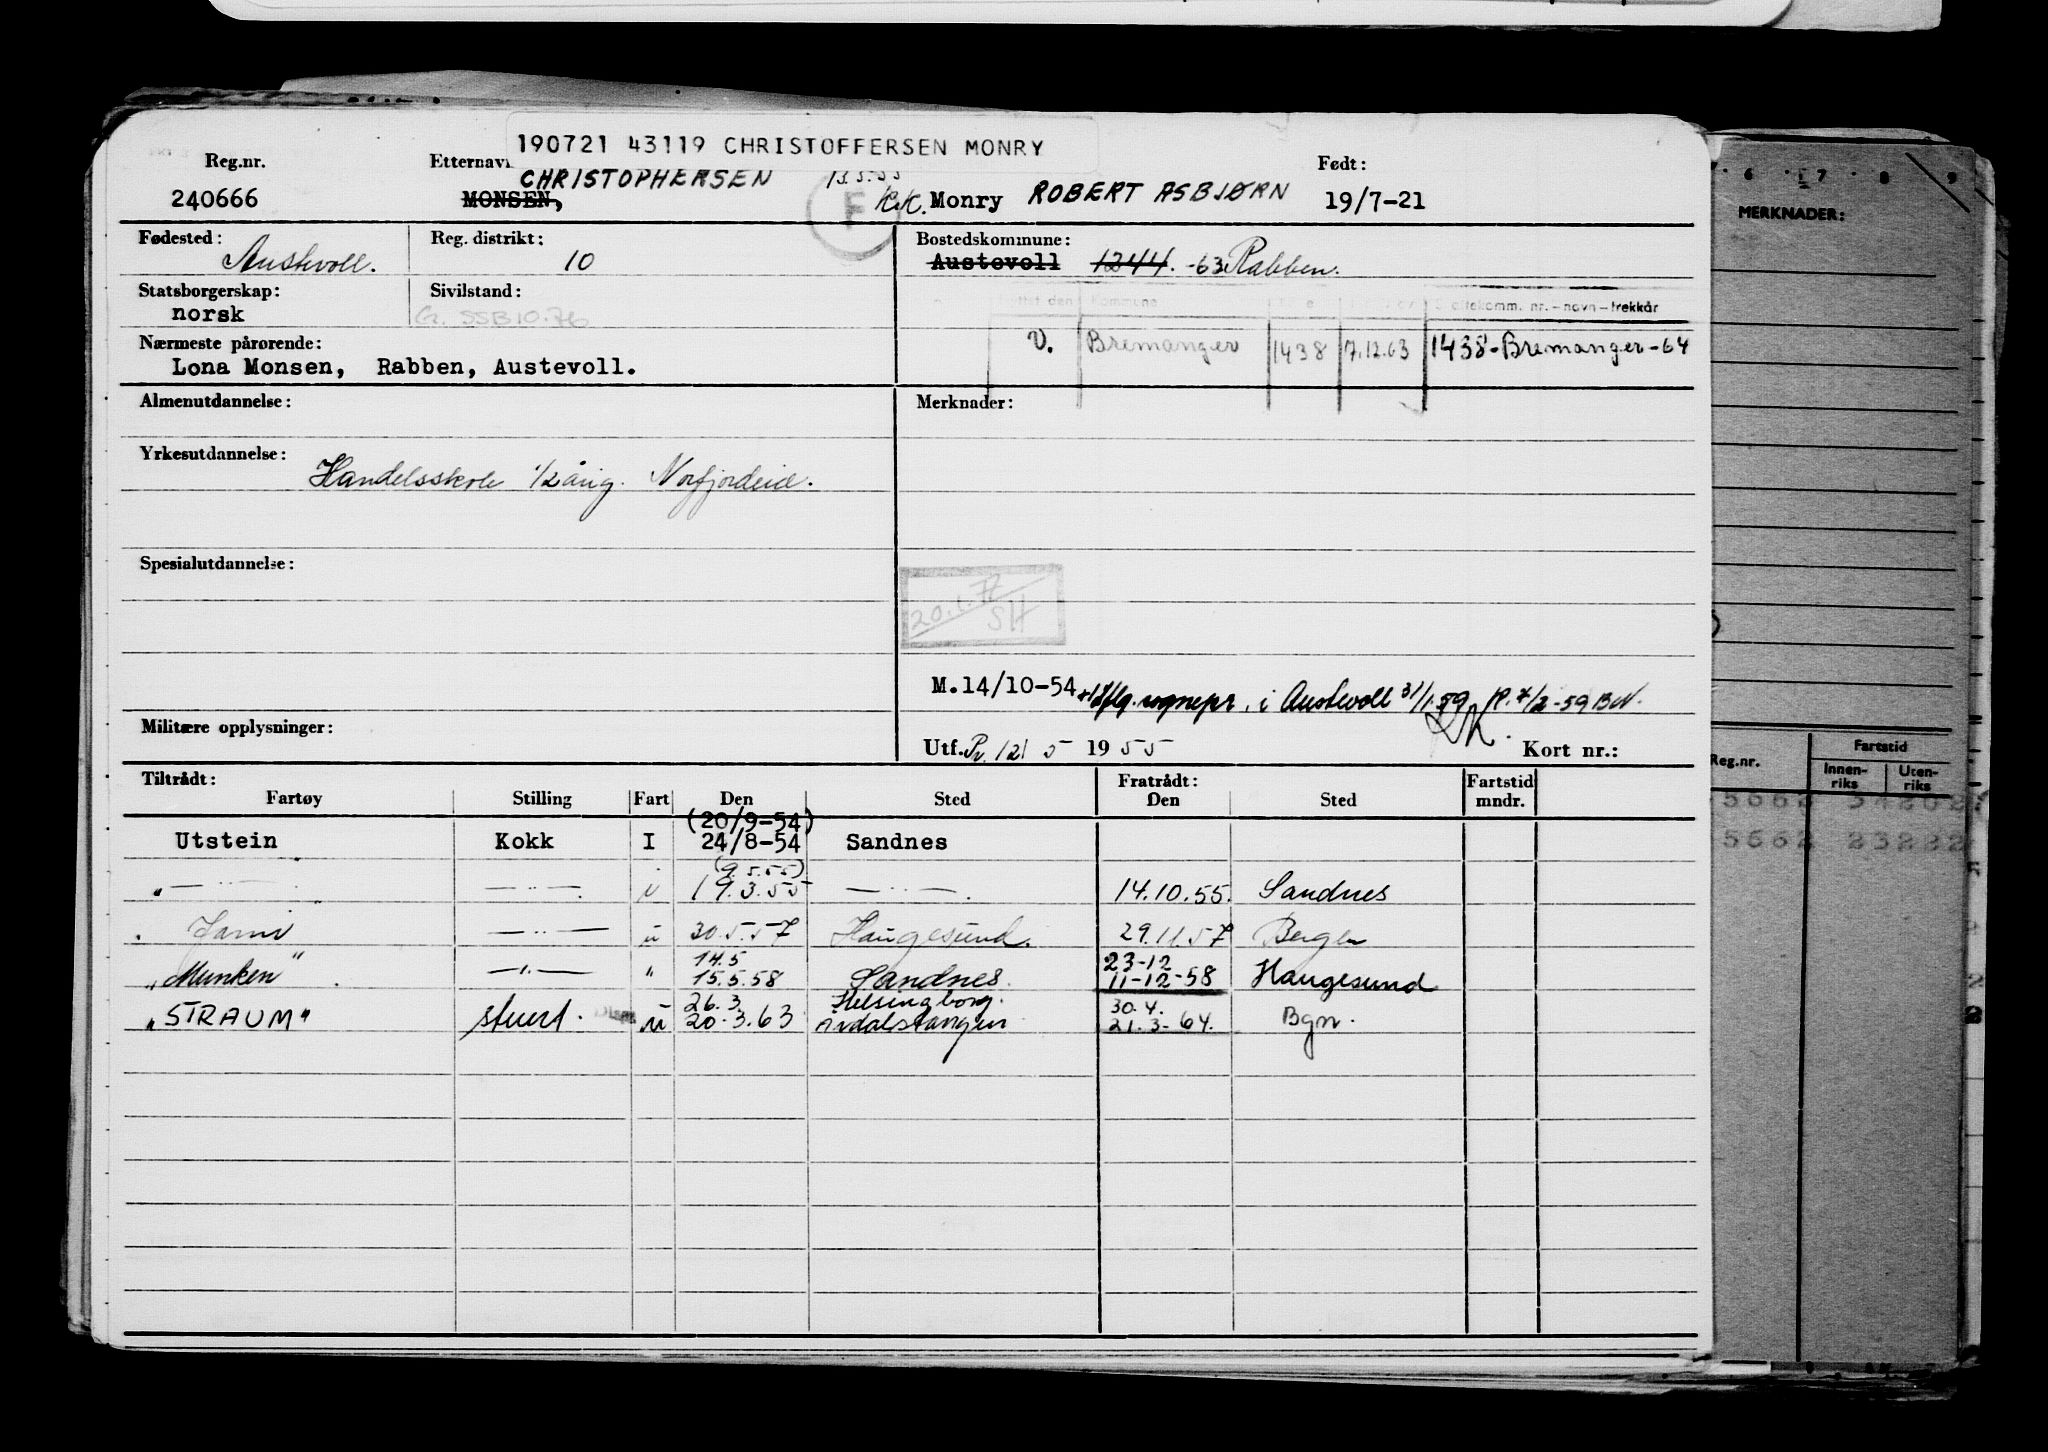 190721 43119 CHRISTOFFERSEN MONRY
Reg.nr. Etternavn Født:
CHRISTOPHERSEN
240666 MONSEN, F K.K. Monry ROBERT ASBJØRN 19/7-21
Fødested: Austevoll. Reg. distrikt: 10 Bostedskommune: Austevoll 1244. -63 Rabben.
Statsborgerskap: norsk Sivilstand: G. SSB 10.76
Kommune
V. Bremanger 1438 7.12.63 1438-Bremanger-64
Nærmeste pårørende:
Lona Monsen, Rabben, Austevoll.
Almenutdannelse: Merknader:
Yrkesutdannelse: Handelsskole 1/2 årig. Nordfjordeid.
Spesialutdannelse:
20.1.77
SH
M.14/10-54 sognepr. i Austevoll 31/1.59 R. 7/2-59 BN.
Militære opplysninger:
Utf. 12/5 1955 Kort nr.:
Tiltrådt: Fratrådt: Fartstid
Fartøy Stilling Fart Den Sted Den Sted mndr.
(20/9-54)
Utstein Kokk I 24/8-54 Sandnes
(9.5.55)
" — " — — " — u 19.3.55 — " — . 14.10.55. Sandnes
— " — u 30.5.57 Haugesund. 29.11.57 Bergen
14.5 23-12
"Munken" — " — " 15.5.58 Sandnes. 11-12-58 Haugesund
26.3. Helsingborg. 30.4.
"STRAUM" stuert. u 20.3.63 Årdalstangen 21.3-64. Bgn.
6 7 8 9
MERKNADER:
Reg.nr. Fartstid
Innen-riks Uten-riks
5662 34202
5662 23222